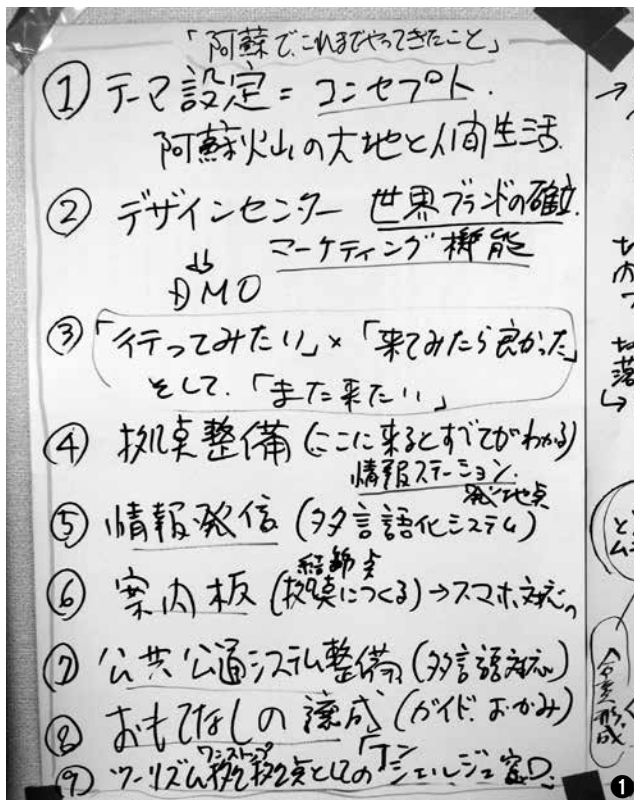 「阿蘇で、これまでやってきたこと」
① テーマ設定 = コンセプト.
阿蘇火山の大地と人間生活.
② デザインセンター 世界ブランドの確立.
マーケティング機能
⇓
DMO
③ 「行ってみたい」×「来てみたら良かった」
そして.「また来たい」
④ 拠点整備 (ここに来るとすべてがわかる)
情報ステーション.
発地点
⑤ 情報発信 (多言語化システム)
結節点
⑥ 案内板 (拠点につくる) →スマホ対応。
⑦ 公共公通システム整備 (多言語対応)
⑧ おもてなしの醸成 (ガイド、おかみ)
ワンストップ
⑨ ツーリズム 拠点としての「コンシェルジュ窓口」
合意形成
❶